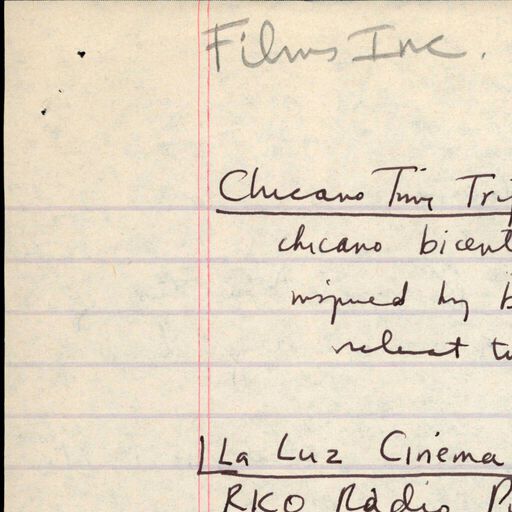 Films Inc.
Chicano Time Trip
chicano bicent
inspired by b
relevant to
La Luz Cinema
RKO Radio P